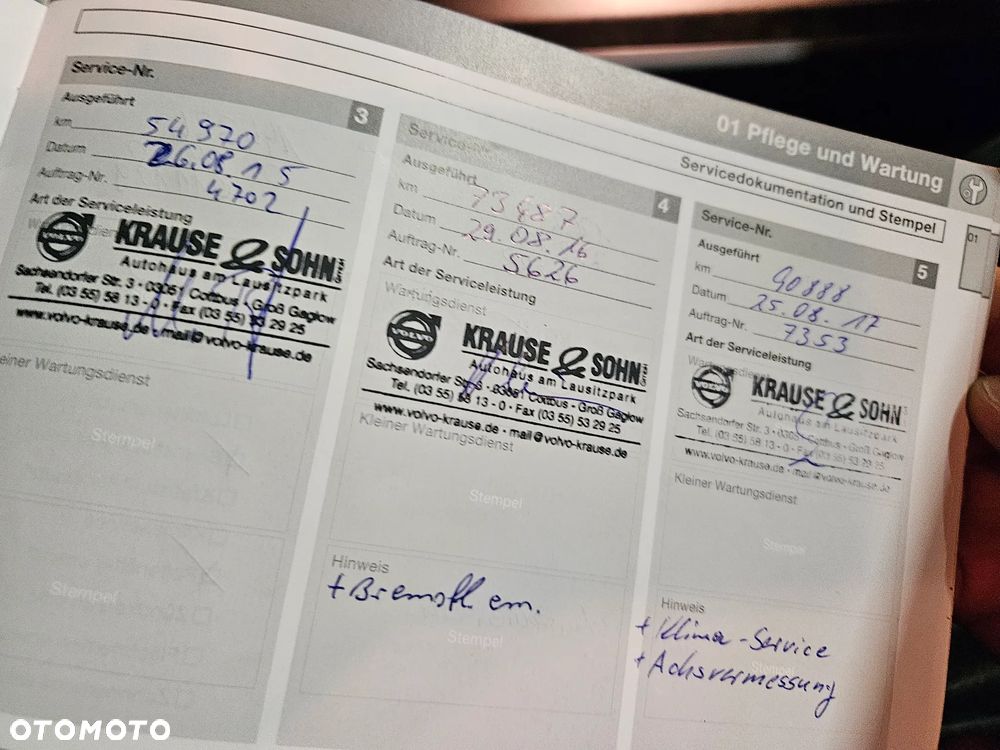 01 Pflege und Wartung
Servicedokumentation und Stempel
01
Service-Nr.
3
Ausgeführt
km 54 970
Datum 26.08.15
Auftrag-Nr. 4702
Art der Serviceleistung
VOLVO
KRAUSE & SOHN
Autohaus am Lausitzpark
Sachsendorfer Str. 3 · 03051 Cottbus · Groß Gaglow
Tel. (03 55) 58 13 - 0 · Fax (03 55) 53 29 25
www.volvo-krause.de · mail@volvo-krause.de
Kleiner Wartungsdienst
Stempel
Stempel
Service-Nr.
4
Ausgeführt
km 73487
Datum 29.08.16
Auftrag-Nr. 5626
Art der Serviceleistung
Wartungsdienst
VOLVO
KRAUSE & SOHN
Autohaus am Lausitzpark
Sachsendorfer Str. 3 · 03051 Cottbus · Groß Gaglow
Tel. (03 55) 58 13 - 0 · Fax (03 55) 53 29 25
www.volvo-krause.de · mail@volvo-krause.de
Kleiner Wartungsdienst
Stempel
Hinweis
+ Bremsfl. ern.
Stempel
Service-Nr.
5
Ausgeführt
km 90888
Datum 25.08.17
Auftrag-Nr. 7353
Art der Serviceleistung
Wartungsdienst
VOLVO
KRAUSE & SOHN
Autohaus am Lausitzpark
Sachsendorfer Str. 3 · 03051 Cottbus · Groß Gaglow
Tel. (03 55) 58 13 - 0 · Fax (03 55) 53 29 25
www.volvo-krause.de · mail@volvo-krause.de
Kleiner Wartungsdienst
Stempel
Hinweis
+ Klima-Service
+ Achsvermessung
Stempel
OTOMOTO